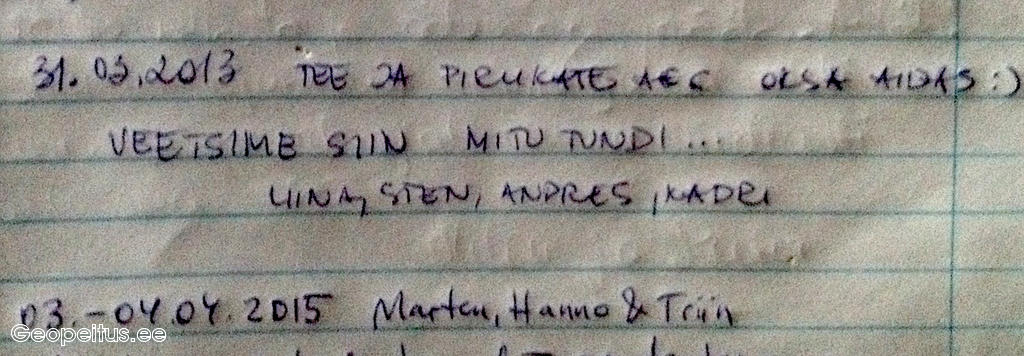 31.03.2013 TEE JA PIRUKATE AEG OKSA AIDAS :)
VEETSIME SIIN MITU TUNDI...
LIINA, STEN, ANDRES, KADRI
03.-04.04.2015 Marten, Hanno & Triin
Geopeitus.ee